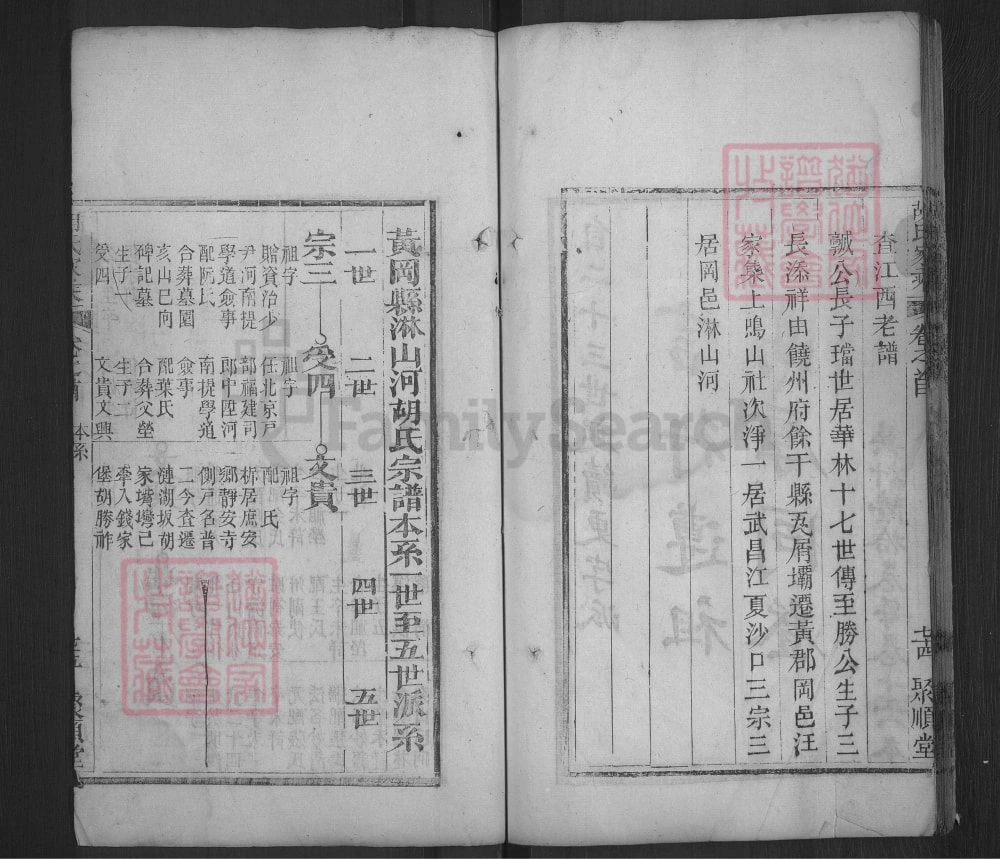 胡氏宗譜 卷之首
查江西老譜
瓢公長子璫世居華林十七世傳至勝公生子三
長添祥由饒州府餘干縣瓦屑壩遷黃郡岡邑汪
家集上鴠山社次淨一居武昌江夏沙口三宗三
居岡邑淋山河
聚順堂
黃岡縣淋山河胡氏宗譜本系一世至五世派系
一世 二世 三世 四世 五世
宗三 受四 文貴
祖字
贈資治少
尹河南提
學道僉事
配阮氏
合葬墓園
亥山巳向
碑記墓
生子一
受四
祖字
任北京戶
部福建司
郎中陞河
南提學道
僉事
配葉氏
合葬父塋
生子二
文貴文興
祖字
配 氏
析居庶安
鄉靜安寺
側戶名普
二今查遷
漣湖坂胡
家墕灣己
奉入錢家
堡胡勝祚
卷之首 本系
聚順堂
FamilySearch